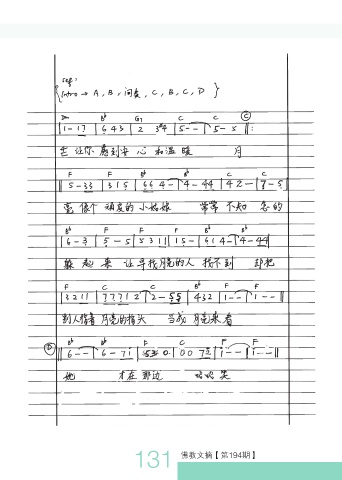 seq:
{ Intro → A, B, 间奏, C, B, C, D }
Dm B♭ G7 C C Ⓒ
1-17 | 643 | 2 3#4 | 5-- | 5-5 ||:
让你 感到安 心 和温 暖 月
F F B♭ B♭ C C
5-33 | 315 | 664- | 4-44 | 42- | 7-5
亮 像个 顽皮的 小姑娘 常常 不知 怎的
B♭ B♭ F F B♭ B♭
6-3 | 5-5 | 5311 | 15- | 614- | 4-44
躲 起 来 让寻找月亮的人 找不到 却把
F C C B♭ F F
3211 | 77712 | 2-55 | 432 | 1-- | 1-- ||
别人指着 月亮的指头 当成 月亮来 看
Ⓓ B♭ B♭ F C F F
6-- | 6-71 | 553 0 | 0072 | 1-- | 1-- ||
她 才在 那边 哈哈 笑
131 佛教文摘【第194期】